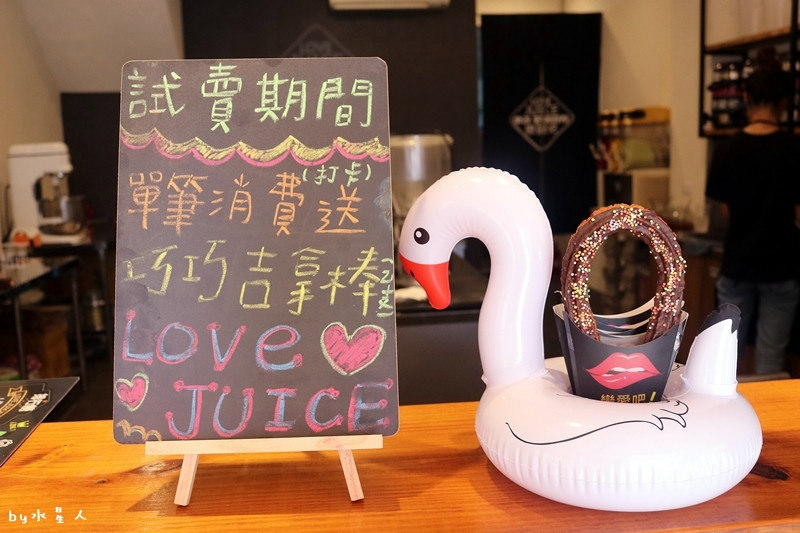 試賣期間
(打卡)
單筆消費送
巧巧吉拿棒
LOVE
JUICE
戀愛吧!
by水星人